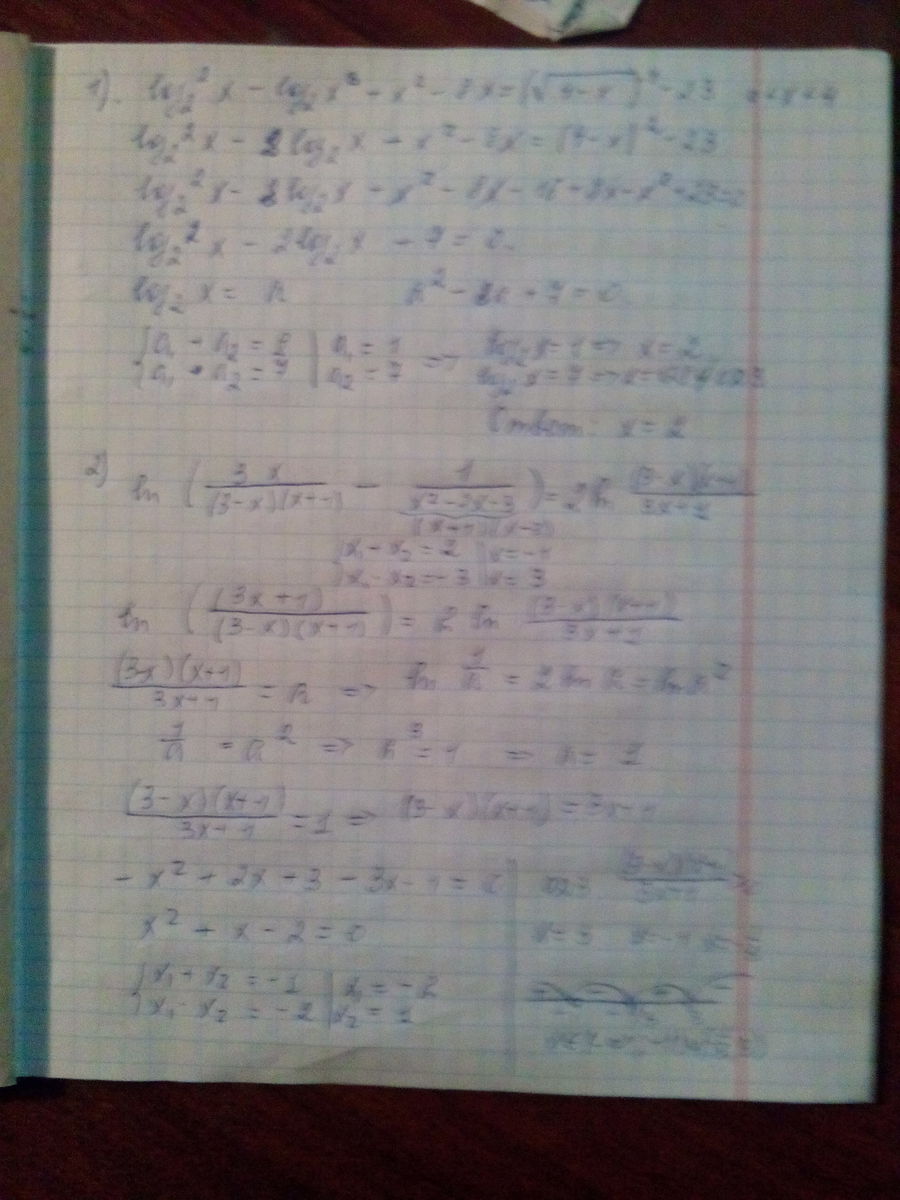 1). log₂²x - log₂x⁸ + x² - 8x = (√4-x)⁴ - 23
log₂²x - 8log₂x + x² - 8x = (4-x)² - 23
log₂²x - 8log₂x + x² - 8x - 16 + 8x - x² + 23 = 0
log₂²x - 8log₂x + 7 = 0
log₂x = a a² - 8a + 7 = 0
a₁ + a₂ = 8 a₁ = 1 => log₂x = 1 => x = 2
a₁ · a₂ = 7 a₂ = 7 log₂x = 7 => x =
Ответ: x = 2
2) ln (3x/((3-x)(x+1)) - 1/(x²-2x-3)) = 2ln (3-x)(x+1)/(3x+1)
(x+1)(x-3)
x₁ + x₂ = 2 x = -1
x₁ · x₂ = -3 x = 3
ln ((3x+1)/((3-x)(x+1))) = 2 ln (3-x)(x+1)/(3x+1)
(3-x)(x+1)/(3x+1) = a => ln 1/a = 2 ln a = ln a²
1/a = a² => a³ = 1 => a = 1
(3-x)(x+1)/(3x+1) = 1 => (3-x)(x+1) = 3x+1
-x² + 2x + 3 - 3x - 1 = 0
x² + x - 2 = 0 x = 3 x = -1
x₁ + x₂ = -1 x₁ = -2
x₁ · x₂ = -2 x₂ = 1